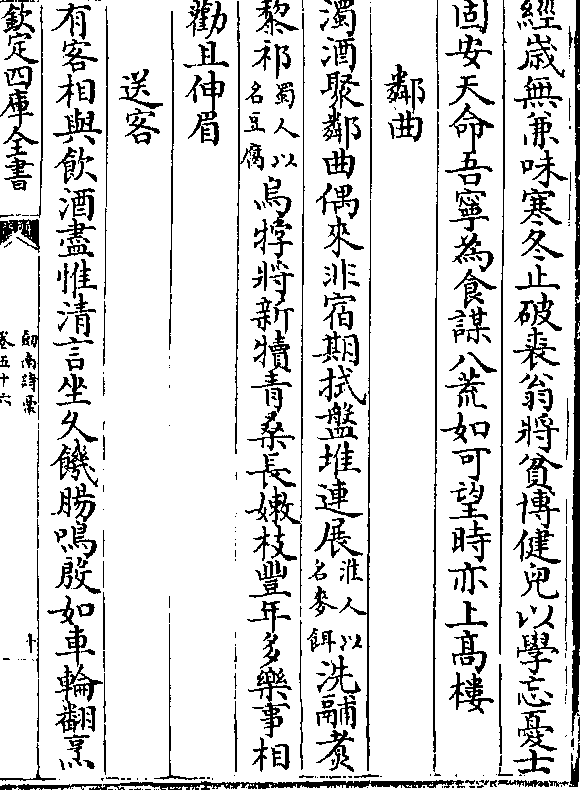 經歳無兼味寒冬止破裘翁將貧博健兒以學忘憂士
固安天命吾寧為食謀八荒如可望時亦上髙樓
鄰曲
濁酒聚鄰曲偶來非宿期拭盤堆連展淮人以名麥餌洗鬴煑
黎祁蜀人以名豆腐烏牸將新犢青桑長嫩枝豐年多樂事相
勸且伸眉
送客
有客相與飲酒盡惟清言坐久饑腸鳴殷如車輪翻烹
欽定四庫全書
劍南詩稾
卷五十六
十